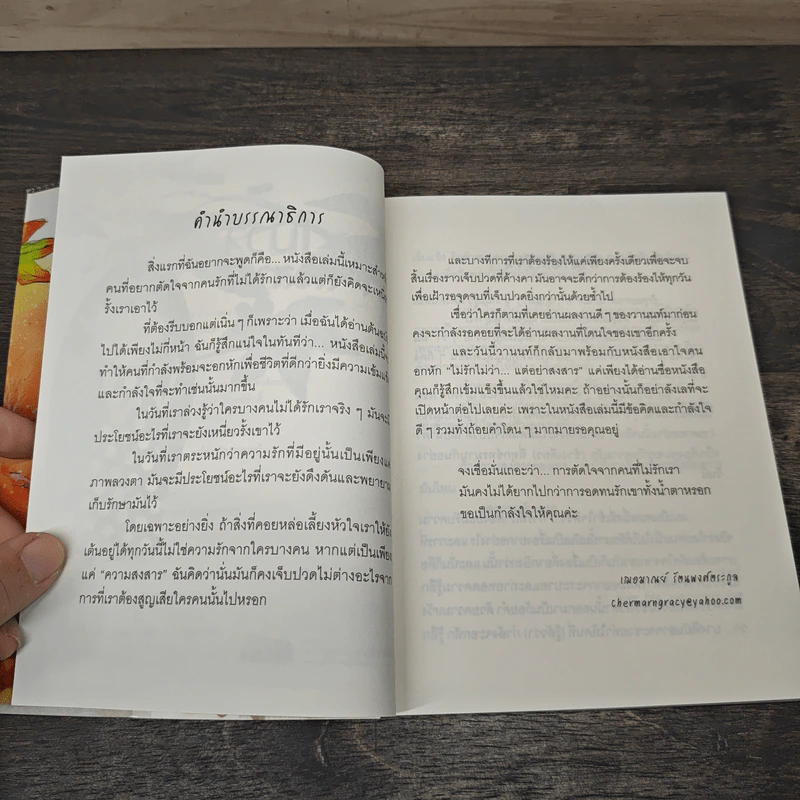 คำนำบรรณาธิการ
สิ่งแรกที่ฉันอยากจะพูดก็คือ... หนังสือเล่มนี้เหมาะสำหรับ
คนที่อยากตัดใจจากคนรักที่ไม่ได้รักเราแล้วแต่ก็ยังคิดจะเหนี่ยว
รั้งเราเอาไว้
ที่ต้องรีบบอกแต่เนิ่น ๆ ก็เพราะว่า เมื่อฉันได้อ่านต้นฉบับ
ไปได้เพียงไม่กี่หน้า ฉันก็รู้สึกแน่ใจในทันทีว่า... หนังสือเล่มนี้จะ
ทำให้คนที่กำลังพร้อมจะอกหักเพื่อชีวิตที่ดีกว่ายิ่งมีความเข้มแข็ง
และกำลังใจที่จะทำเช่นนั้นมากขึ้น
ในวันที่เราล่วงรู้ว่าใครบางคนไม่ได้รักเราจริง ๆ มันจะมี
ประโยชน์อะไรที่เราจะยังเหนี่ยวรั้งเขาไว้
ในวันที่เราตระหนักว่าความรักที่มีอยู่นั้นเป็นเพียงแค่
ภาพลวงตา มันจะมีประโยชน์อะไรที่เราจะยังดึงดันและพยายาม
เก็บรักษามันไว้
โดยเฉพาะอย่างยิ่ง ถ้าสิ่งที่คอยหล่อเลี้ยงหัวใจเราให้ยัง
เต้นอยู่ได้ทุกวันนี้ไม่ใช่ความรักจากใครบางคน หากแต่เป็นเพียง
แค่ “ความสงสาร” ฉันคิดว่านั่นมันก็คงเจ็บปวดไม่ต่างอะไรจาก
การที่เราต้องสูญเสียใครคนนั้นไปหรอก
และบางทีการที่เราต้องร้องไห้แค่เพียงครั้งเดียวเพื่อจะจบ
สิ้นเรื่องราวเจ็บปวดที่ค้างคา มันอาจจะดีกว่าการต้องร้องไห้ทุกวัน
เพื่อเฝ้ารอจุดจบที่เจ็บปวดยิ่งกว่านั้นด้วยซ้ำไป
เชื่อว่าใครก็ตามที่เคยอ่านผลงานดี ๆ ของวานนท์มาก่อน
คงจะกำลังรอคอยที่จะได้อ่านผลงานที่โดนใจของเขาอีกครั้ง
และวันนี้วานนท์ก็กลับมาพร้อมกับหนังสือเอาใจคน
อกหัก “ไม่รักไม่ว่า... แต่อย่าสงสาร” แค่เพียงได้อ่านชื่อหนังสือ
คุณก็รู้สึกเข้มแข็งขึ้นแล้วใช่ไหมคะ ถ้าอย่างนั้นก็อย่าลังเลที่จะ
เปิดหน้าต่อไปเลยค่ะ เพราะในหนังสือเล่มนี้มีข้อคิดและกำลังใจ
ดี ๆ รวมทั้งถ้อยคำโดน ๆ มากมายรอคุณอยู่
จงเชื่อมั่นเถอะว่า... การตัดใจจากคนที่ไม่รักเรา
มันคงไม่ได้ยากไปกว่าการอดทนรักเขาทั้งน้ำตาหรอก
ขอเป็นกำลังใจให้คุณค่ะ
เฌอมาณย์ รัตนพงศ์ตระกูล
chermarngracy@yahoo.com